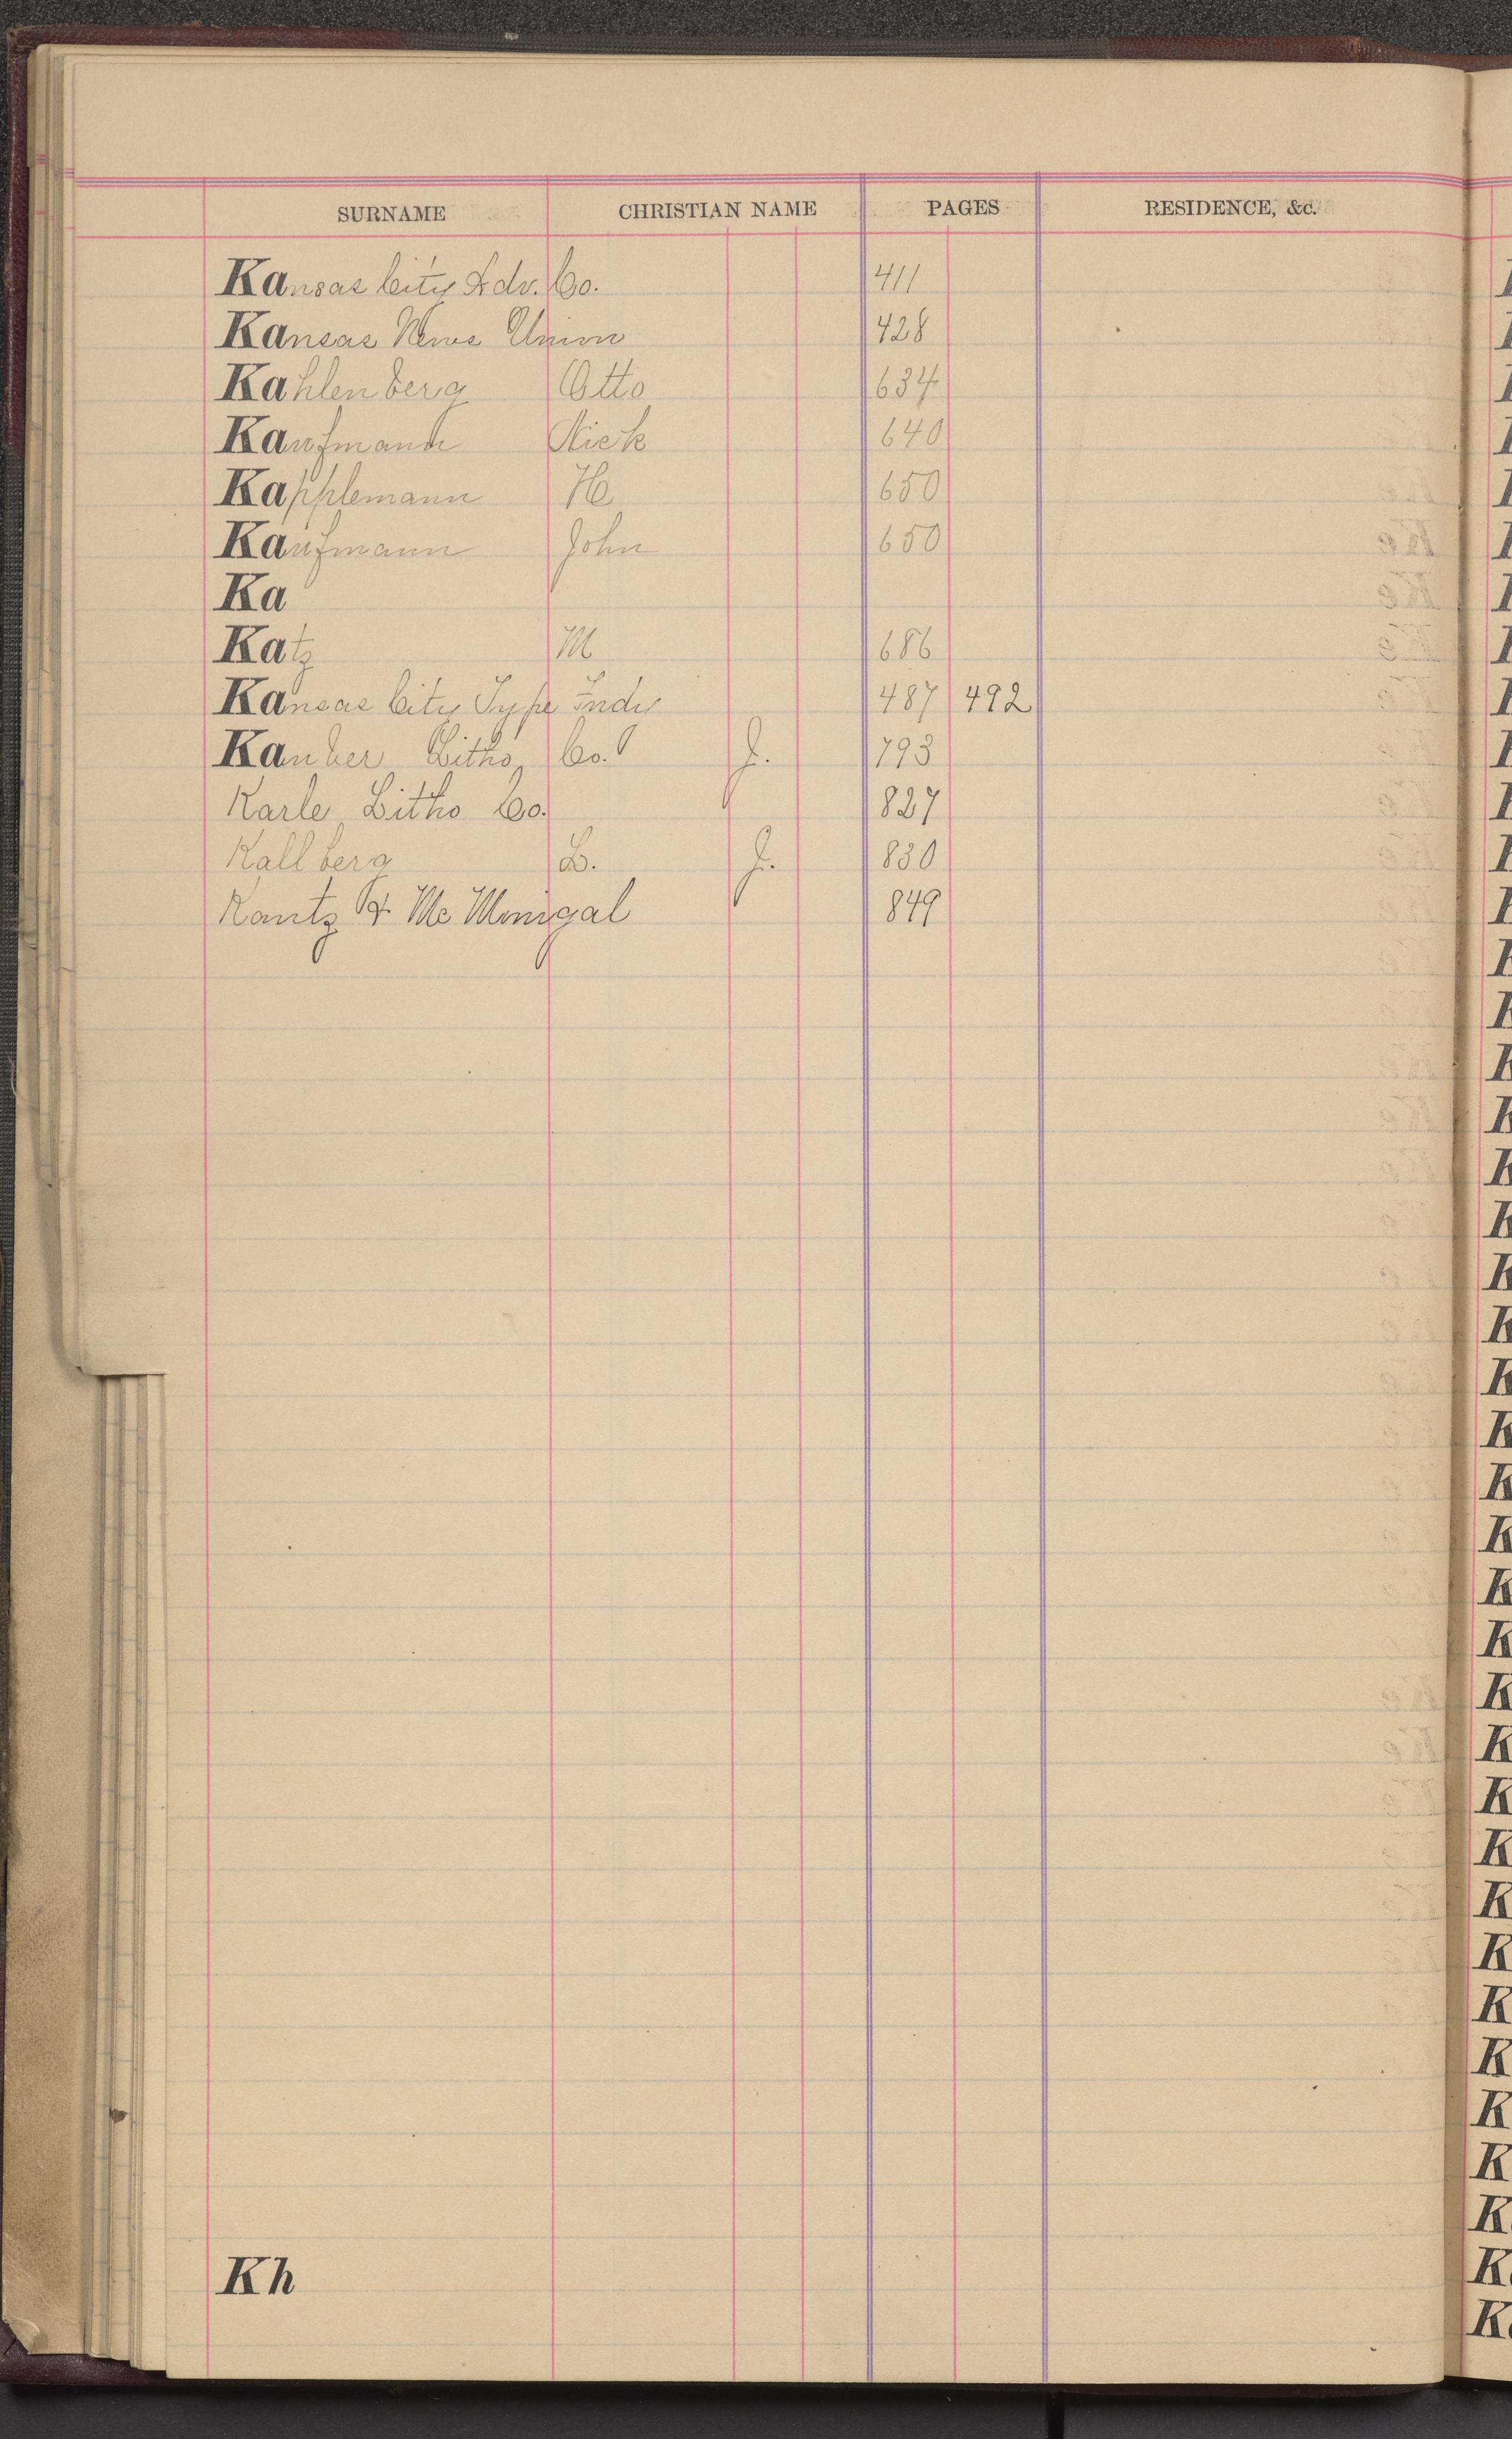 SURNAME CHRISTIAN NAME PAGES RESIDENCE, &c.
Kansas City Adv. Co. 411
Kansas News Union 428
Kahlenberg Otto 634
Kaufmann Nick 640
Kapplemann H 650
Kaufmann John 650
Ka
Katz M 686
Kansas City Type Fndy 487 492
Kauber Litho Co. J. 793
Karle Litho Co. 827
Kallberg L. J. 830
Kantz & Mc Monigal 849
Kh